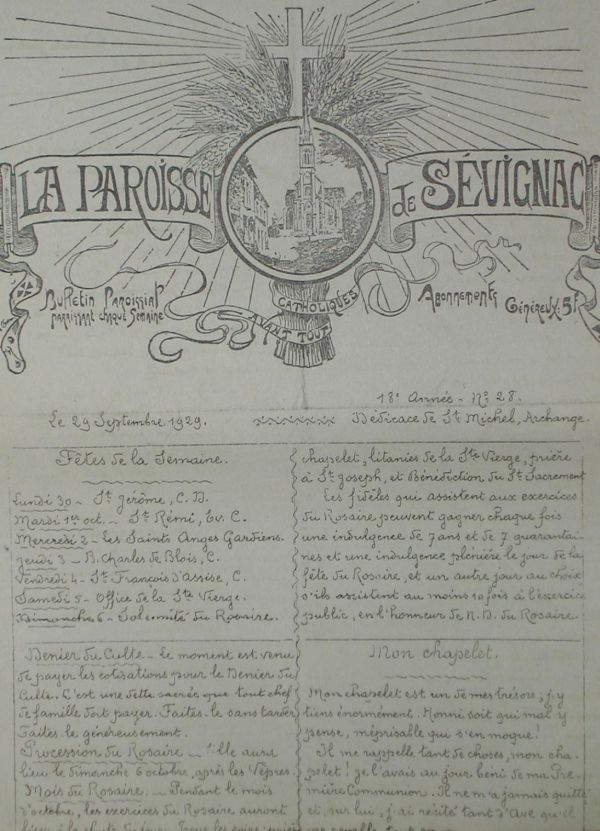 LA PAROISSE de SÉVIGNAC
Bulletin Paroissial
paraissant chaque Semaine
CATHOLIQUES
AVANT TOUT
Abonnements
Généreux: 5f
18e Année - No 28.
Le 29 Septembre 1929.
Dédicace de St Michel, Archange.
Fêtes de la Semaine.
Lundi 30 - St Jérôme, C. D.
Mardi 1er oct. - St Rémi, Ev. C.
Mercredi 2 - Les Saints Anges Gardiens.
Jeudi 3 - B. Charles de Blois, C.
Vendredi 4 - St François d'Assise, C.
Samedi 5 - Office de la Ste Vierge.
Dimanche 6 - Solennité du Rosaire.
Denier du Culte - Le moment est venu
de payer les cotisations pour le Denier du
Culte. C'est une dette sacrée que tout chef
de famille doit payer. Faites-le sans tarder
Faites-le généreusement.
Procession du Rosaire - Elle aura
lieu le dimanche 6 octobre, après les Vêpres.
Mois du Rosaire. - Pendant le mois
d'octobre, les exercices du Rosaire auront
chapelet, litanies de la Ste Vierge, prière
à St Joseph, et Bénédiction du St Sacrement
Les fidèles qui assistent aux exercices
du Rosaire peuvent gagner chaque fois
une indulgence de 7 ans et de 7 quarantai-
nes et une indulgence plénière le jour de la
fête du Rosaire, et un autre jour au choix
s'ils assistent au moins 10 fois à l'exercice
public, en l'honneur de N. D. du Rosaire.
Mon chapelet.
Mon chapelet est un de mes trésors, j'y
tiens énormément. Honni soit qui mal y
pense, méprisable qui s'en moque!
Il me rappelle tant de choses, mon cha-
pelet! Je l'avais au jour béni de ma Pre-
mière Communion. Il ne m'a jamais quitté
et, sur lui, j'ai récité tant d'Ave qu'il